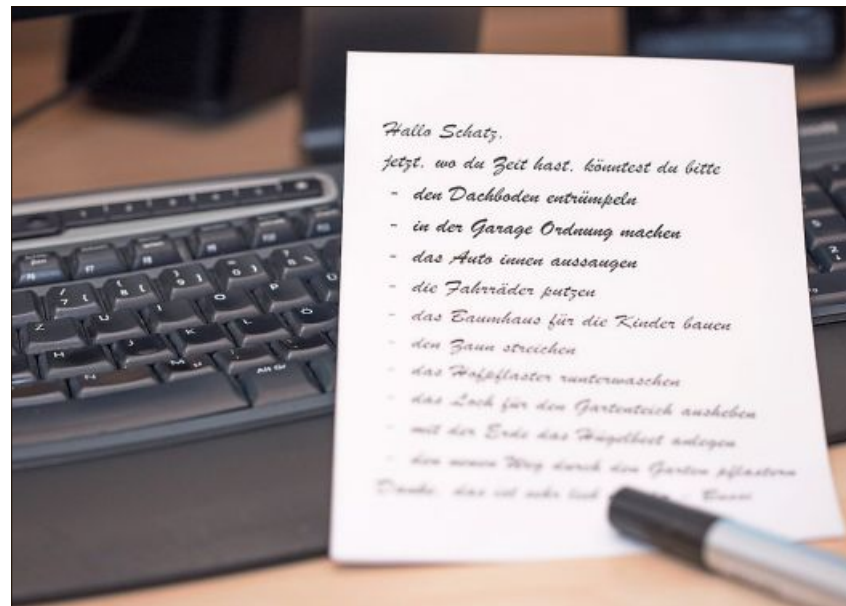 Hallo Schatz,
jetzt, wo du Zeit hast, könntest du bitte
- den Dachboden entrümpeln
- in der Garage Ordnung machen
- das Auto innen aussaugen
- die Fahrräder putzen
- das Baumhaus für die Kinder bauen
- den Zaun streichen
- das Hofpflaster runterwaschen
- das Loch für den Gartenteich ausheben
- mit der Erde das Hügelbeet anlegen
- den neuen Weg durch den Garten pflastern
Danke, das ist sehr lieb
F6 F7 F8
7 8 9 0
Z U I O P Ü
H J K L Ö
N M Alt Gr